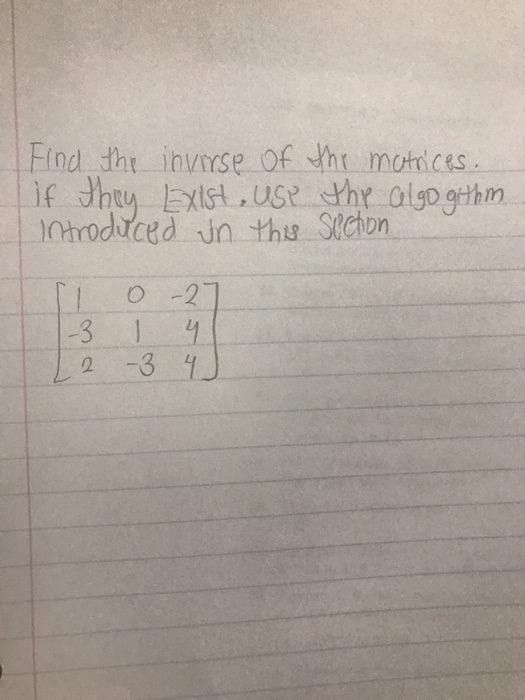 Find the inverse of the matrices.
if they Exist, use the algogithm
introduced in this section
1 0 -2
-3 1 4
2 -3 4